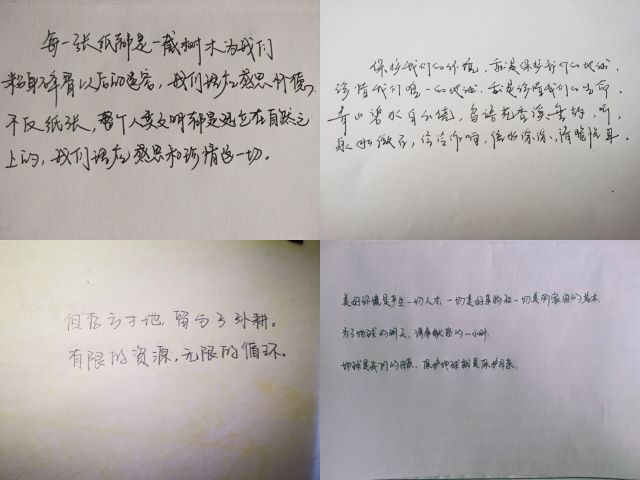 每一张纸都是一截树木为我们
粉身碎骨以后的遗容，我们理应感恩
不仅纸张，整个人类文明都是建立在自然之
上的，我们理应感恩和珍惜这一切。
保护我们的环境，就是保护我们的地球，
珍惜我们唯一的地球，就是珍惜我们的生命。
青山碧水自不绕，鸟语花香
但存方寸地，留与子孙耕。
有限的资源，无限的循环。
美好环境是产生一切人才，一切美好事物和一切美丽家园的基本。
为了地球的明天，请奉献您的一小时。
地球是我们的母亲，保护地球就是保护母亲。